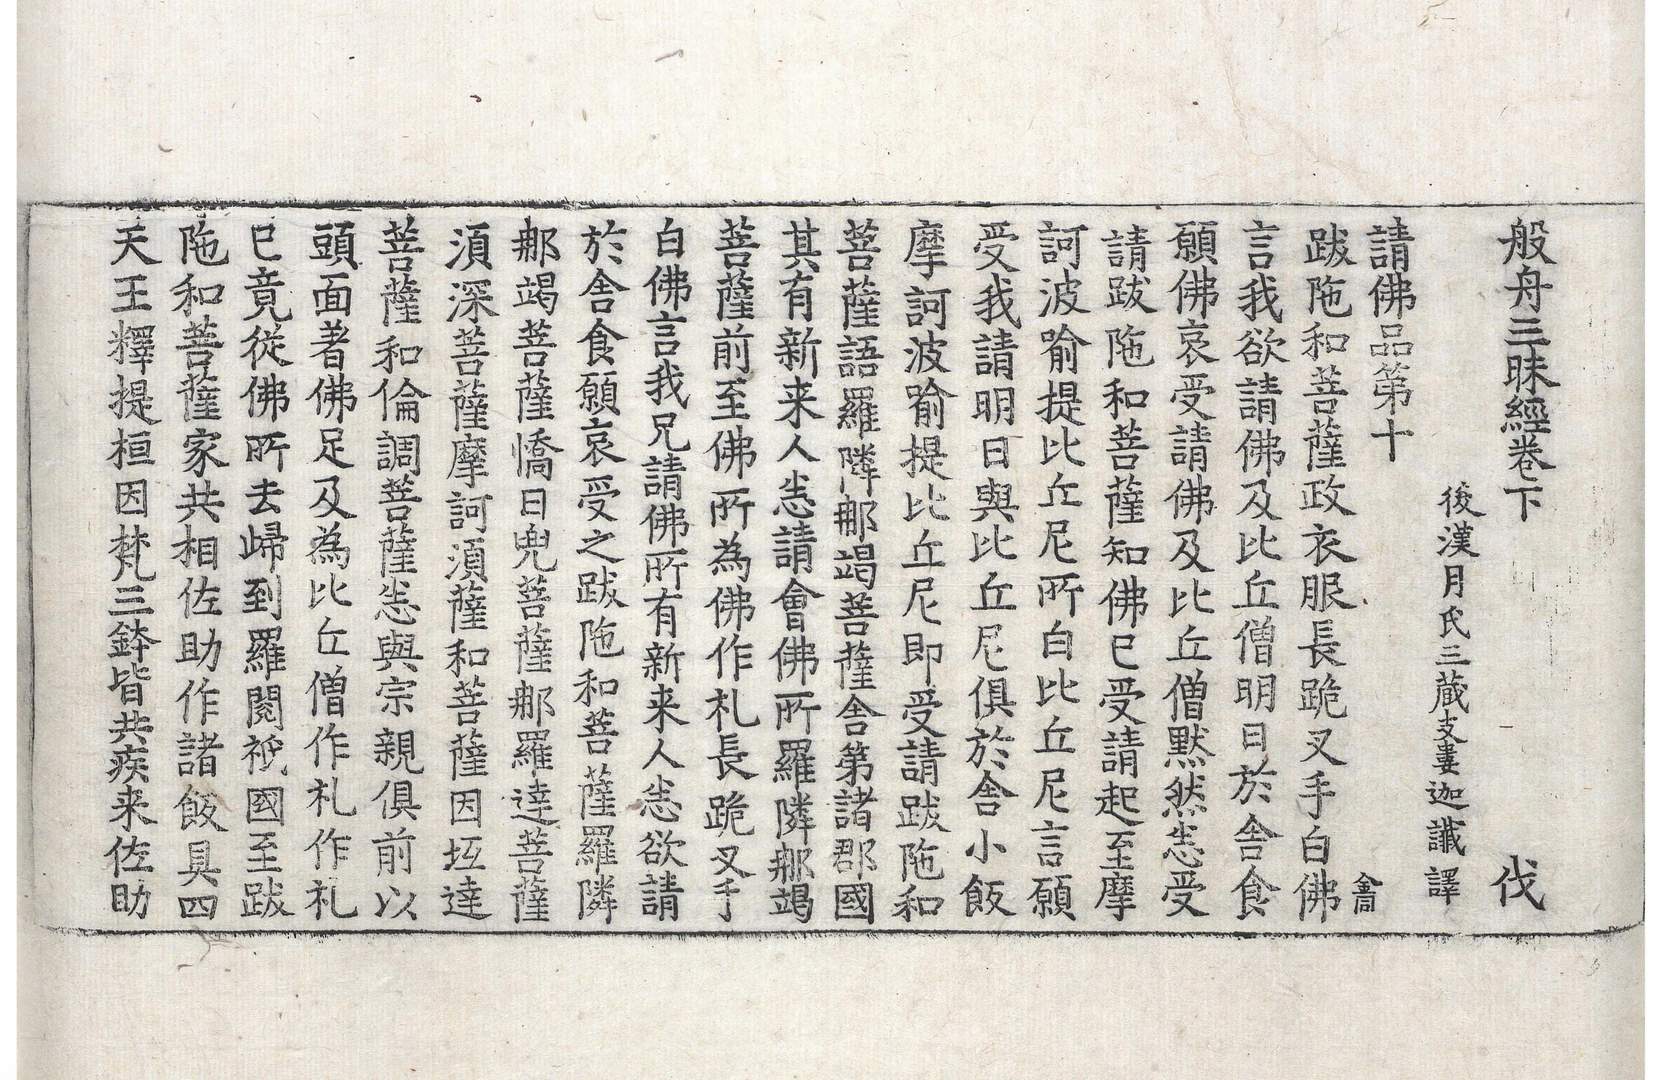 般舟三昧經卷下　伐
後漢月氏三藏支婁迦讖譯
請佛品第十
跋陁和菩薩政衣服長跪叉手白佛
言我欲請佛及比丘僧明日於舍食
願佛哀受請佛及比丘僧黙然悉受
請跋陁和菩薩知佛已受請起至摩
訶波喻提比丘尼所白比丘尼言願
受我請明日與比丘尼俱於舍小飯
摩訶波喻提比丘尼即受請跋陁和
菩薩語羅隣那竭菩薩舍第諸郡國
其有新来人悉請會佛所羅隣那竭
菩薩前至佛所為佛作礼長跪叉手
白佛言我兄請佛所有新来人悉欲請
於舍食願哀受之跋陁和菩薩羅隣
那竭菩薩憍日兜菩薩那羅達菩薩
須深菩薩摩訶須薩和菩薩因坻達
菩薩和倫調菩薩悉與宗親俱前以
頭面著佛足及為比丘僧作礼作礼
已竟從佛所去歸到羅閱祇國至跋
陁和菩薩家共相佐助作諸飯具四
天王釋提桓因梵三鉢皆共疾来佐助